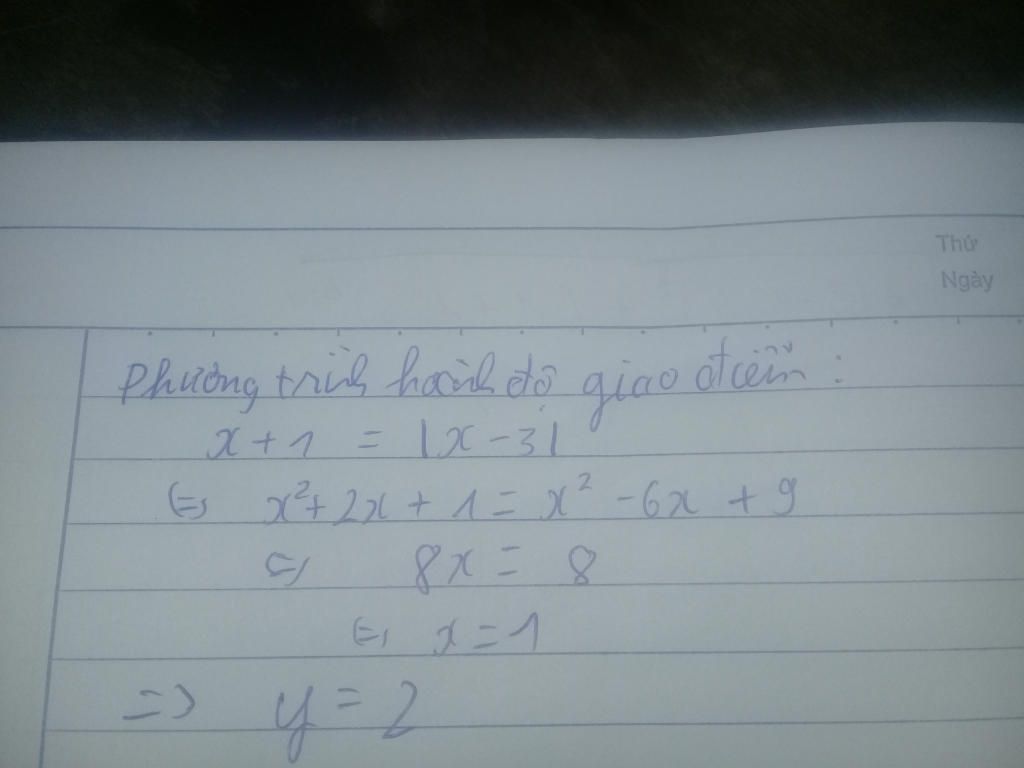 Thứ
Ngày
Phương trình hoành độ giao điểm:
x + 1 = |x - 3|
⇔ x² + 2x + 1 = x² - 6x + 9
⇔ 8x = 8
⇔ x = 1
=> y = 2